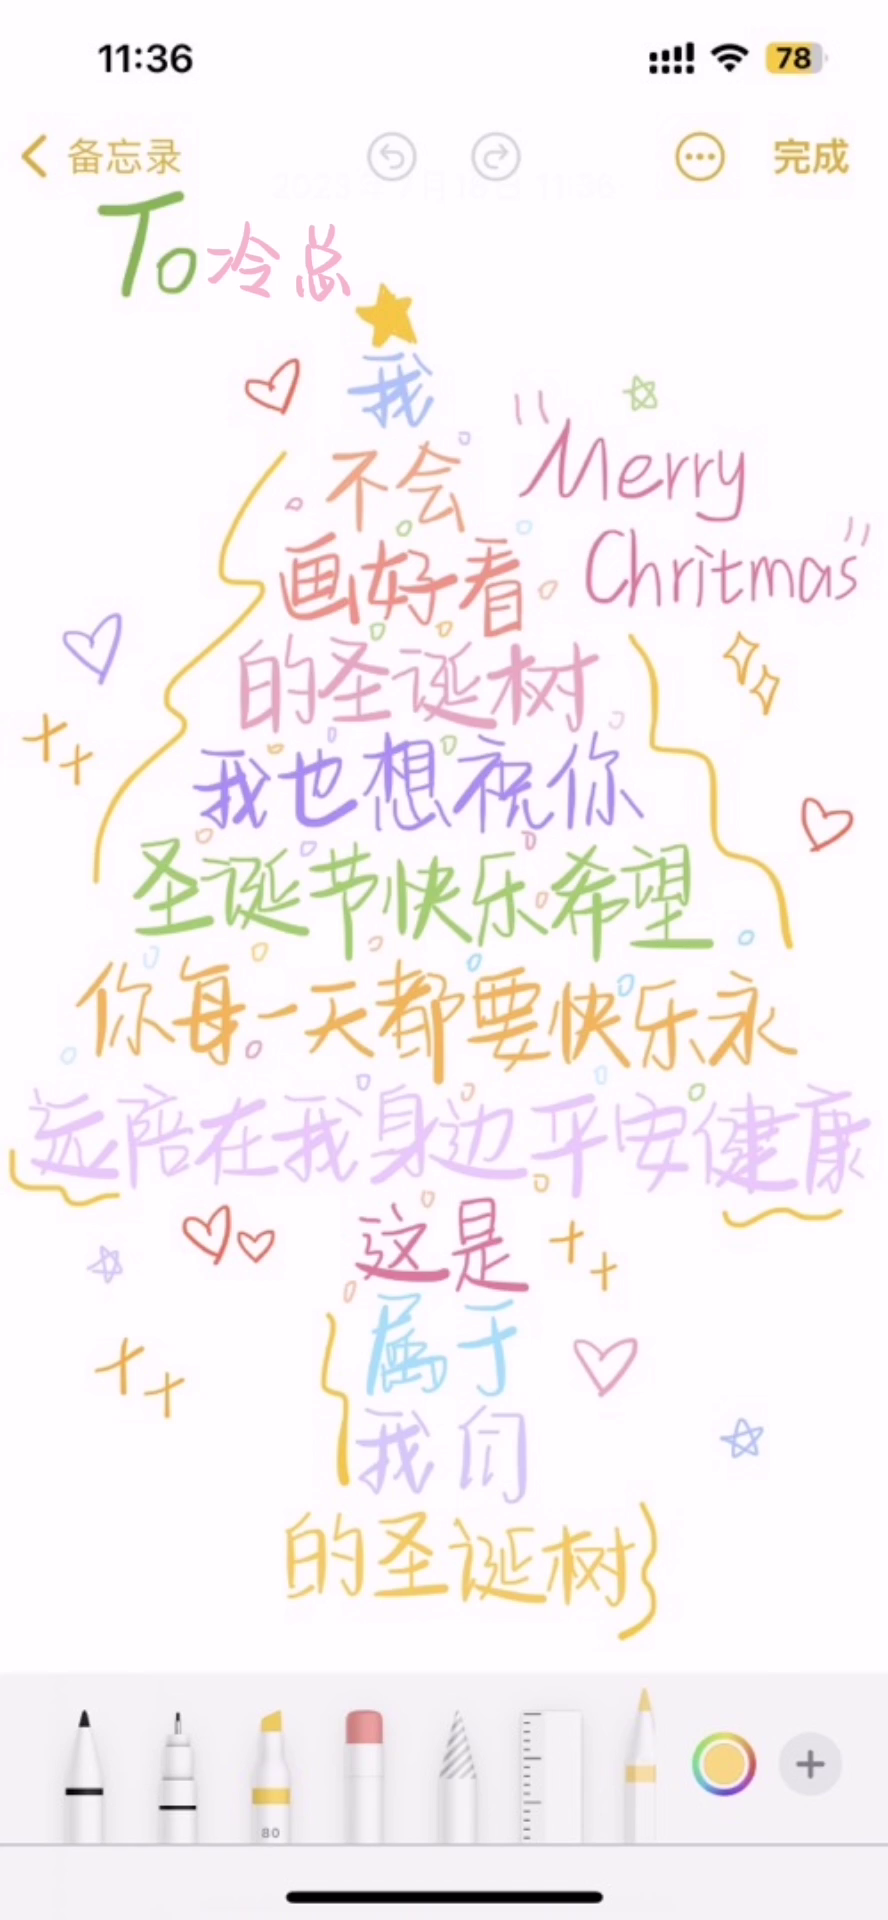 11:36
78
备忘录
完成
2023年7月18日 11:36
To冷总
我
不会
"Merry
画好看
Chritmas"
的圣诞树
我也想祝你
圣诞节快乐希望
你每一天都要快乐永
远陪在我身边平安健康
这是
属于
我们
的圣诞树
80